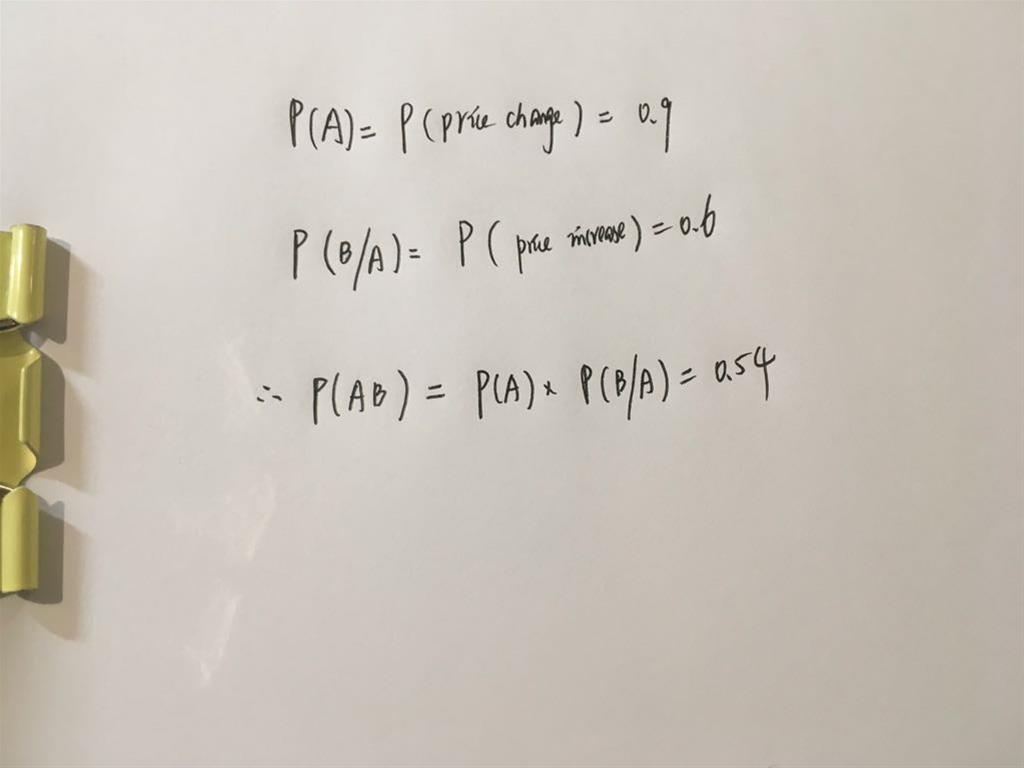 P(A) = P(price change) = 0.9
P(B/A) = P(price increase) = 0.6
∴ P(AB) = P(A) × P(B/A) = 0.54